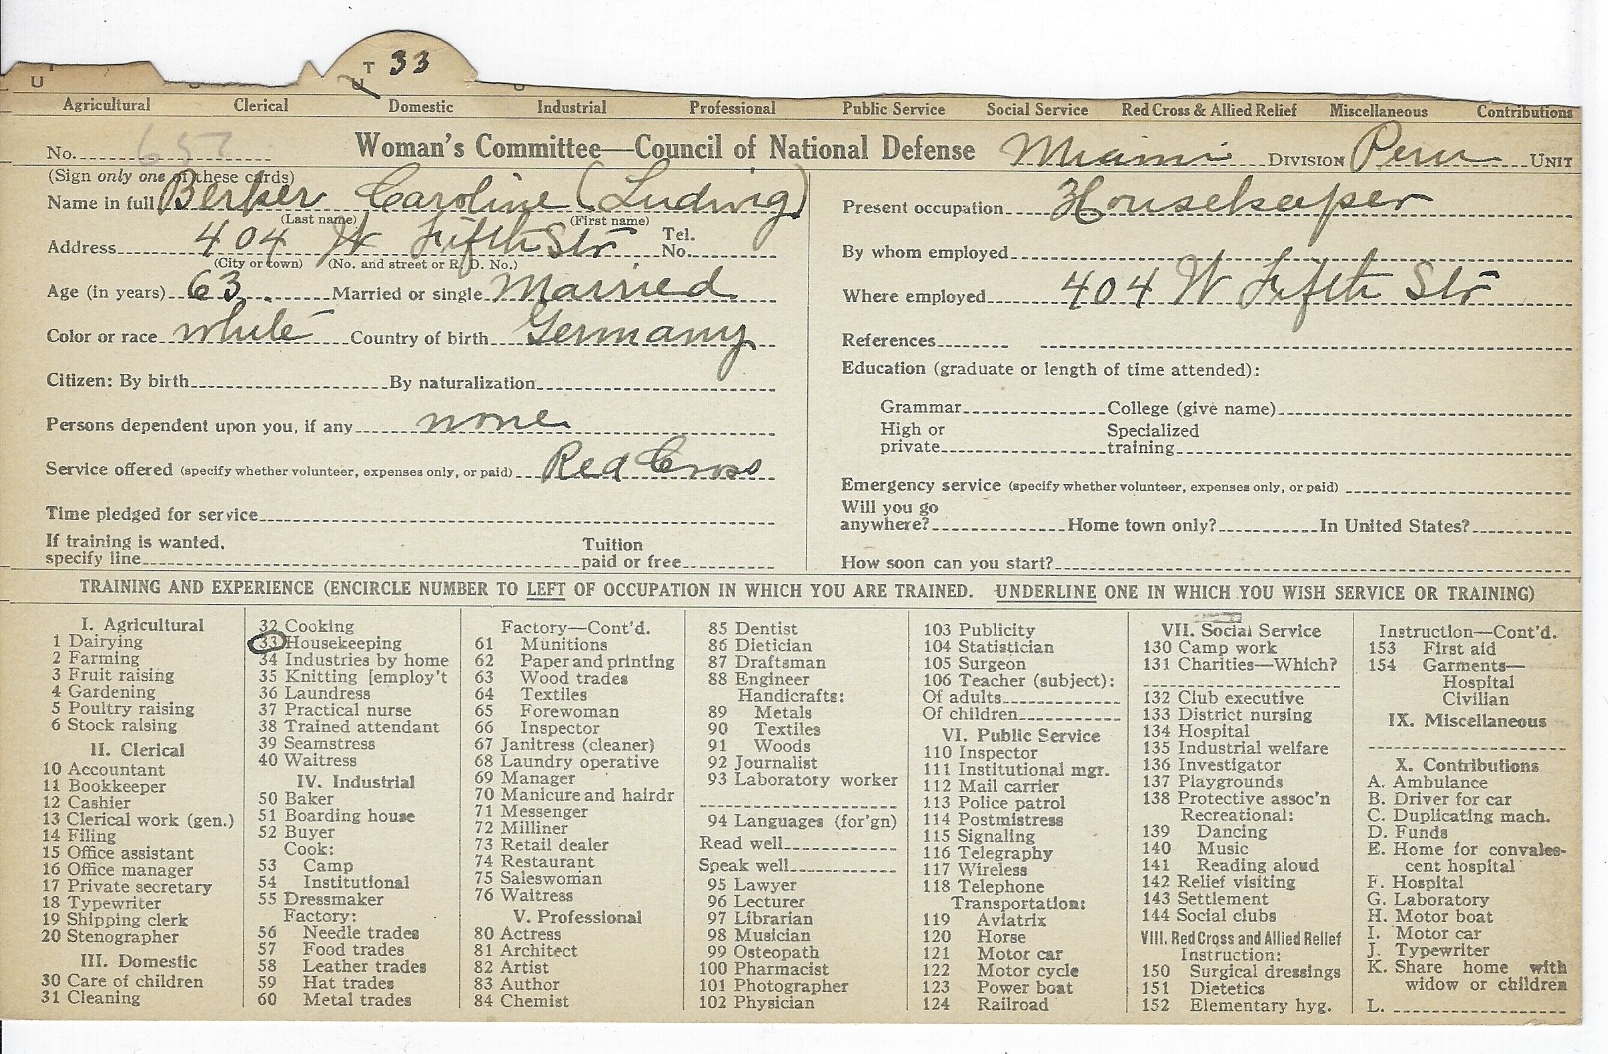 U T 33
Agricultural Clerical Domestic Industrial Professional Public Service Social Service Red Cross & Allied Relief Miscellaneous Contributions
No. 657 Woman's Committee—Council of National Defense Miami DIVISION Peru UNIT
(Sign only one of these cards)
Name in full Berker Caroline (Ludwig)
(Last name) (First name)
Address 404 W Fifth Str Tel. No.
(City or town) (No. and street or R. D. No.)
Age (in years) 63. Married or single Married
Color or race white Country of birth Germany
Citizen: By birth By naturalization
Persons dependent upon you, if any none
Service offered (specify whether volunteer, expenses only, or paid) Red Cross
Time pledged for service
If training is wanted, specify line Tuition paid or free
Present occupation Housekeeper
By whom employed
Where employed 404 W Fifth Str
References
Education (graduate or length of time attended):
Grammar College (give name)
High or private Specialized training
Emergency service (specify whether volunteer, expenses only, or paid)
Will you go anywhere? Home town only? In United States?
How soon can you start?
TRAINING AND EXPERIENCE (ENCIRCLE NUMBER TO LEFT OF OCCUPATION IN WHICH YOU ARE TRAINED. UNDERLINE ONE IN WHICH YOU WISH SERVICE OR TRAINING)
I. Agricultural
1 Dairying
2 Farming
3 Fruit raising
4 Gardening
5 Poultry raising
6 Stock raising
II. Clerical
10 Accountant
11 Bookkeeper
12 Cashier
13 Clerical work (gen.)
14 Filing
15 Office assistant
16 Office manager
17 Private secretary
18 Typewriter
19 Shipping clerk
20 Stenographer
III. Domestic
30 Care of children
31 Cleaning
32 Cooking
33 Housekeeping
34 Industries by home
35 Knitting [employ't
36 Laundress
37 Practical nurse
38 Trained attendant
39 Seamstress
40 Waitress
IV. Industrial
50 Baker
51 Boarding house
52 Buyer
Cook:
53 Camp
54 Institutional
55 Dressmaker
Factory:
56 Needle trades
57 Food trades
58 Leather trades
59 Hat trades
60 Metal trades
Factory—Cont'd.
61 Munitions
62 Paper and printing
63 Wood trades
64 Textiles
65 Forewoman
66 Inspector
67 Janitress (cleaner)
68 Laundry operative
69 Manager
70 Manicure and hairdr
71 Messenger
72 Milliner
73 Retail dealer
74 Restaurant
75 Saleswoman
76 Waitress
V. Professional
80 Actress
81 Architect
82 Artist
83 Author
84 Chemist
85 Dentist
86 Dietician
87 Draftsman
88 Engineer
Handicrafts:
89 Metals
90 Textiles
91 Woods
92 Journalist
93 Laboratory worker
94 Languages (for'gn)
Read well
Speak well
95 Lawyer
96 Lecturer
97 Librarian
98 Musician
99 Osteopath
100 Pharmacist
101 Photographer
102 Physician
103 Publicity
104 Statistician
105 Surgeon
106 Teacher (subject):
Of adults
Of children
VI. Public Service
110 Inspector
111 Institutional mgr.
112 Mail carrier
113 Police patrol
114 Postmistress
115 Signaling
116 Telegraphy
117 Wireless
118 Telephone
Transportation:
119 Aviatrix
120 Horse
121 Motor car
122 Motor cycle
123 Power boat
124 Railroad
VII. Social Service
130 Camp work
131 Charities—Which?
132 Club executive
133 District nursing
134 Hospital
135 Industrial welfare
136 Investigator
137 Playgrounds
138 Protective assoc'n
Recreational:
139 Dancing
140 Music
141 Reading aloud
142 Relief visiting
143 Settlement
144 Social clubs
VIII. Red Cross and Allied Relief
Instruction:
150 Surgical dressings
151 Dietetics
152 Elementary hyg.
Instruction—Cont'd.
153 First aid
154 Garments—
Hospital
Civilian
IX. Miscellaneous
X. Contributions
A. Ambulance
B. Driver for car
C. Duplicating mach.
D. Funds
E. Home for convales-
cent hospital
F. Hospital
G. Laboratory
H. Motor boat
I. Motor car
J. Typewriter
K. Share home with
widow or children
L.